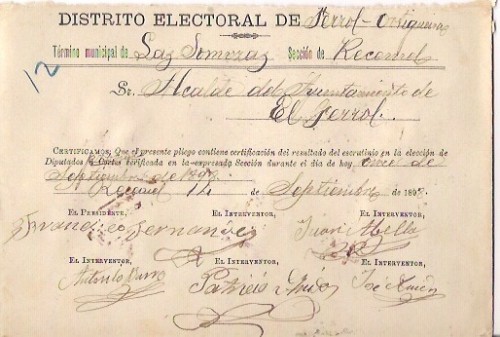 DISTRITO ELECTORAL DE Ferrol-Ortigueira
Término municipal de Las Somozas Sección de Recemel
12
Sr. Alcalde del Ayuntamiento de
El Ferrol.
CERTIFICAMOS: Que el presente pliego contiene certificación del resultado del escrutinio en la elección de
Diputados á Cortes verificada en la expresada Sección durante el día de hoy, once de
Septiembre de
Recemel 12 de Septiembre de 189
EL PRESIDENTE, EL INTERVENTOR, EL INTERVENTOR,
Francisco Fernandez Juan Abella
EL INTERVENTOR, EL INTERVENTOR, EL INTERVENTOR,
Antonio Patricio José